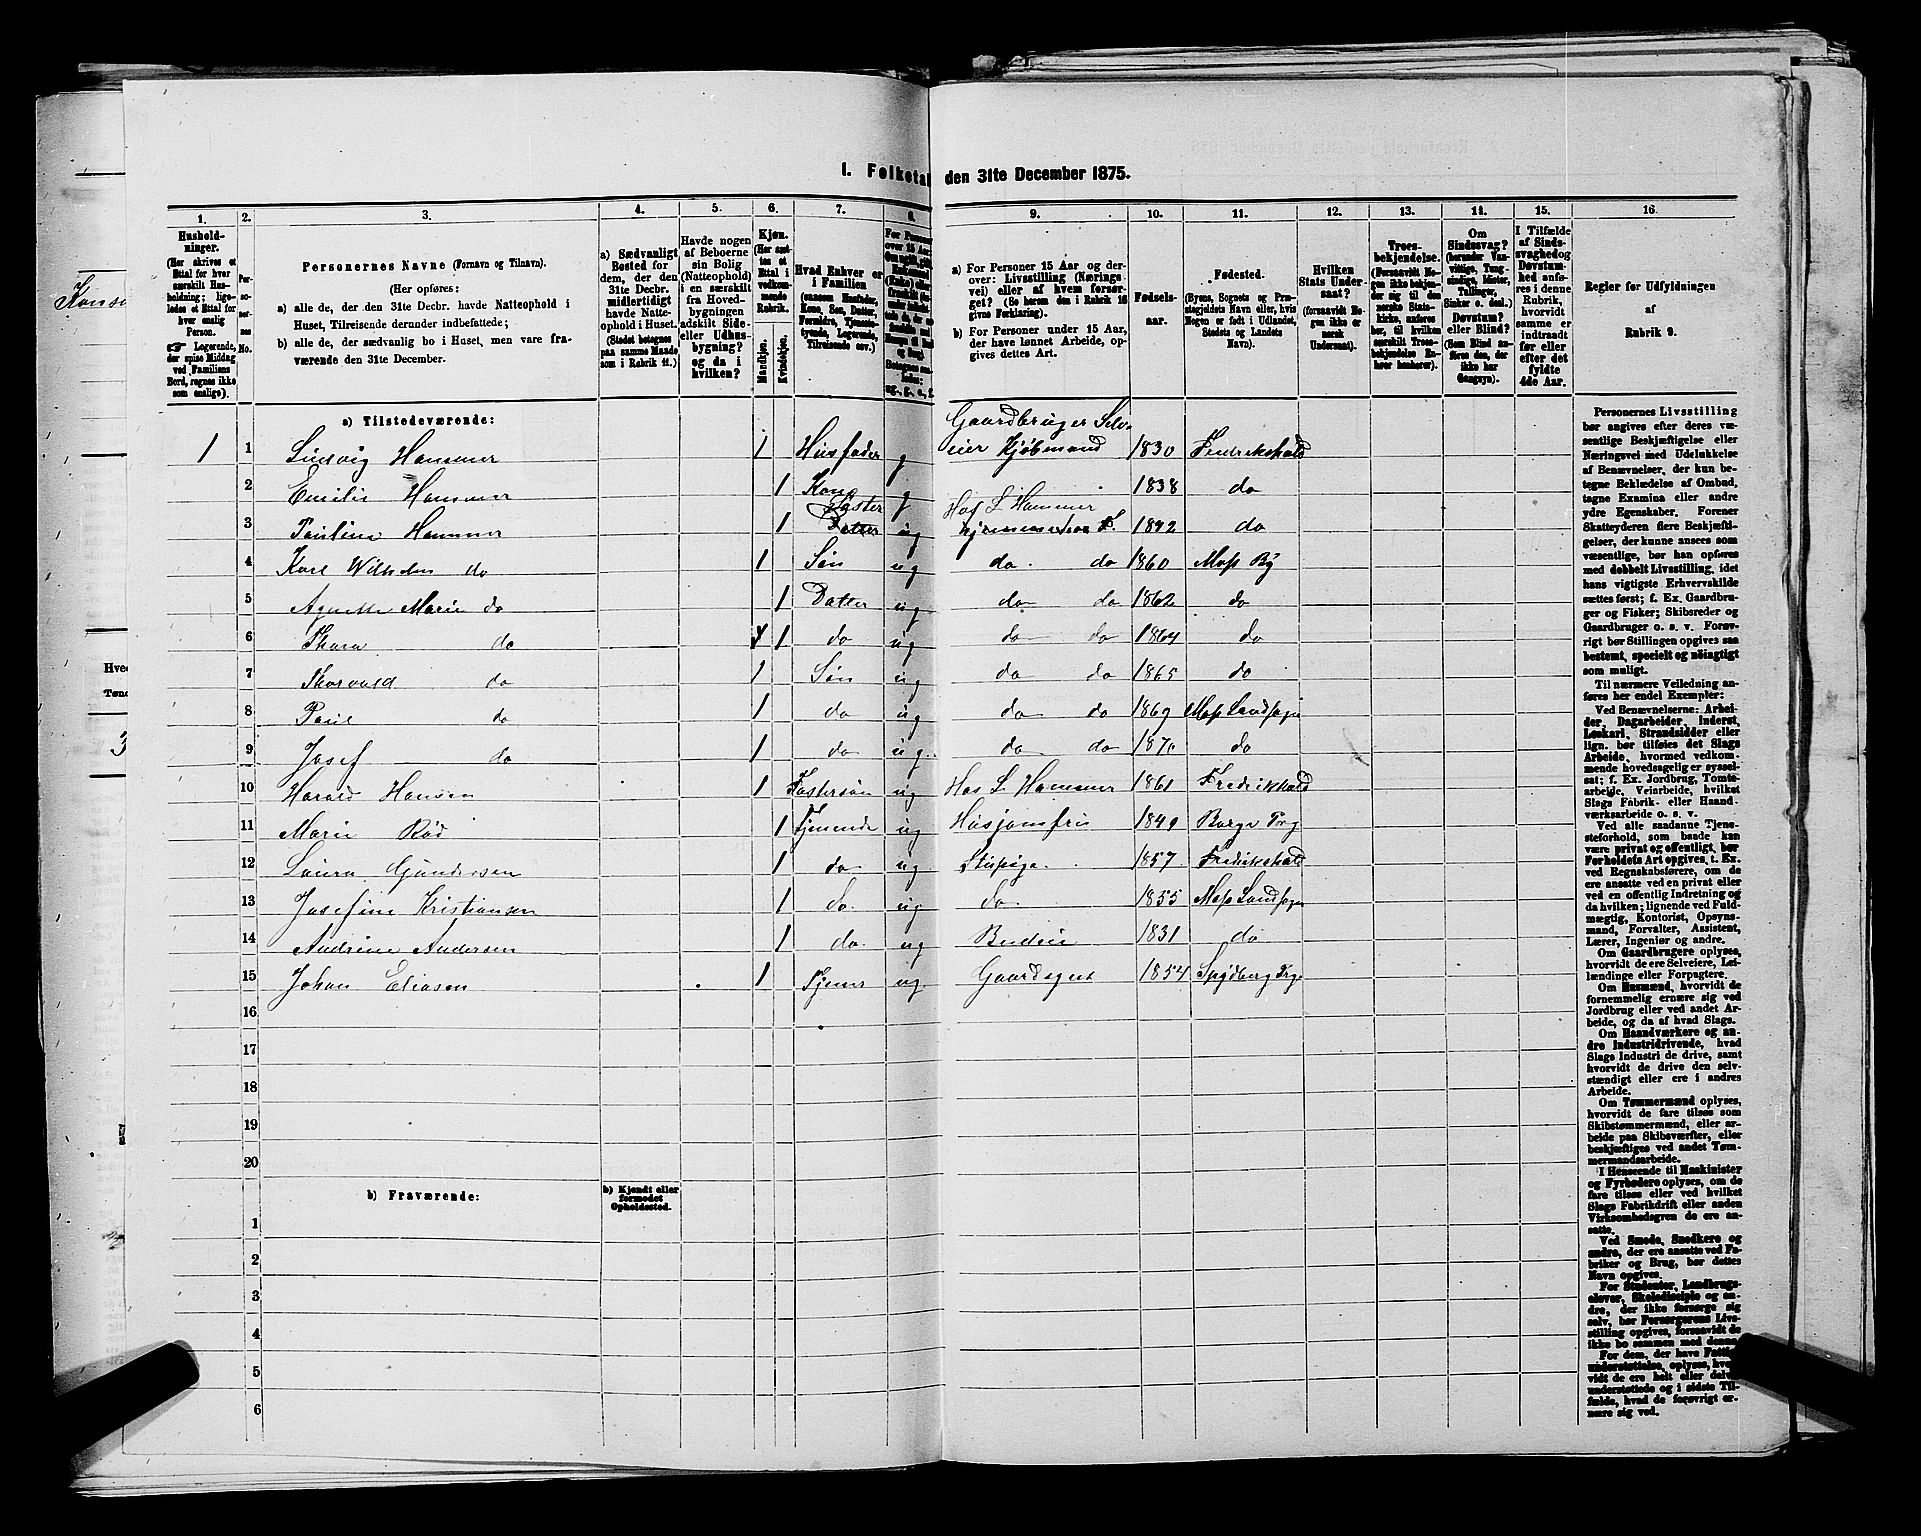 I. Folketal den 31te December 1875.
1. 2. 3. 4. 5. 6. 7. 8. 9. 10. 11. 12. 13. 14. 15. 16
Hushold-
ninger.
(Her skrives et
Ettal for hver
særskilt Hus-
holdning; lige-
ledes et Ettal for
hver enslig
Person.
☞ Logerende,
der spise Middag
ved Familiens
Bord, regnes ikke
som enslige).
Per-
soner-
nes
No.
Personernes Navne (Fornavn og Tilnavn).
(Her opføres:
a) alle de, der den 31te Decbr. havde Natteophold i
Huset, Tilreisende derunder indbefattede;
b) alle de, der sædvanlig bo i Huset, men vare fra-
værende den 31te December.
a) Sædvanligt
Bosted for
dem, der den
31te Decbr.
midlertidigt
havde Natte-
ophold i Huset.
(Stedet betegnes
paa samme Maade
som i Rubrik 11.)
Havde nogen
af Beboerne
sin Bolig
(Natteophold)
i en særskilt
fra Hoved-
bygningen
adskilt Side-
eller Udhus-
bygning?
og da i
hvilken?
Kjøn.
(Her sæt-
tes et
Ettal i
vedkom-
mende
Rubrik.
Mandkjøn.
Kvindekjøn.
Hvad Enhver er
i Familien
(saasom Husfader,
Kone, Søn, Datter,
Forældre, Tjeneste-
tyende, Logerende,
Tilreisende osv.)
For Personer
over 15 Aar
a) For Personer 15 Aar og der-
over: Livsstilling (Nærings-
vei) eller af hvem forsør-
get? (Se herom den i Rubrik 16
givne Forklaring).
b) For Personer under 15 Aar,
der have lønnet Arbeide, op-
gives dettes Art.
Fødsels-
aar.
Fødested.
(Byens, Sognets og Præ-
stegjeldets Navn eller, hvis
Nogen er født i Udlandet,
Stedets og Landets
Navn).
Hvilken
Stats Under-
saat?
(forsaavidt No-
gen ikke er
norsk
Undersaat).
Troes-
bekjendelse.
(Forsaavidt No-
gen ikke bekjen-
der sig til den
norske Stats-
kirke, anføres
her, til hvilken
særskilt Troes-
bekjendelse En-
hver henhører).
Om
Sindssvag?
(herunder Van-
vittige, Tung-
sindige, Idioter,
Tullinger,
Sinker o. desl.)
Døvstum?
eller Blind?
(Som Blind an-
føres den, der
ikke har
Gangsyn).
I Tilfælde
af Sinds-
svaghed og
Døvstum-
hed anfø-
res i denne
Rubrik,
hvorvidt
samme er
indtraadt
før eller
efter det
fyldte
4de Aar.
Regler for Udfyldningen
af
Rubrik 9.
a) Tilstedeværende:
Gaardbruger Selv-
1 1 Ludvig Hammer 1 Husfader g eier Kjøbmand 1830 Fredrikshald
2 Emilie Hammer 1 Kone g 1838 do
Søster Hos L Hammer
3 Paulina Hammer 1 Datter ug 1842 do
4 Karl Wilhelm do 1 Søn ug do do 1860 Moss By
5 Agnethe Marie do 1 Datter ug do do 1862 do
6 Thora do 1 do ug do do 1864 do
7 Thorvald do 1 Søn ug do do 1865 do
8 Paul do 1 do ug do do 1869 Moss Landsogn
9 Josef do 1 do ug. do do 1870 do
10 Harald Hansen 1 Fostersøn ug Hos L Hammer 1861 Fredrikshald
11 Marie Rød 1 Tjenende ug Husjomfru 1849 Borge Prg
12 Laura Gundersen 1 do ug Stupige 1857 Fredrikshald
13 Josefine Kristiansen 1 do. ug do 1855 Moss Landsogn
14 Andrine Andersen 1 do. ug Budeie 1831 do
15 Johan Eliasen 1 Tjener ug. Gaardsgut 1854 Spydberg Prg.
16
17
18
19
20
b) Fraværende:
b) Kjendt eller
formodet
Opholdssted.
1
2
3
4
5
6
Personernes Livsstilling
bør angives efter deres væ-
sentlige Beskjæftigelse eller
Næringsvei med Udelukkelse
af Benævnelser, der kun be-
tegne Beklædelse af Ombud,
tagne Examina eller andre
ydre Egenskaber. Forener
Skatteyderen flere Beskjæfti-
gelser, der kunne ansees som
væsentlige, bør han opføres
med dobbelt Livsstilling, idet
hans vigtigste Erhvervskilde
sættes først; f. Ex. Gaardbru-
ger og Fisker; Skibsreder og
Gaardbruger o. s. v. Forøv-
rigt bør Stillingen opgives saa
bestemt, specielt og nöiagtigt
som muligt.
Til nærmere Veiledning an-
føres her endel Exempler:
Ved Benævnelserne: Arbei-
der, Dagarbeider, Inderst,
Løskarl, Strandsidder eller
lign. bør tilføies det Slags
Arbeide, hvormed vedkom-
mende hovedsagelig er syssel-
sat; f. Ex. Jordbrug, Tomte-
arbeide, Veiarbeide, hvilket
Slags Fabrik- eller Haand-
værksarbeide o. s. v.
Ved alle saadanne Tjene-
steforhold, som baade kan
være privat og offentligt, bør
Forholdets Art opgives, t. Ex.
ved Regnskabsførere, om de
ere ansatte ved en privat eller
ved en offentlig Indretning og
da hvilken; lignende ved Fuld-
mægtig, Kontorist, Opsyns-
mand, Forvalter, Assistent,
Lærer, Ingeniør og andre.
Om Gaardbrugere oplyses,
hvorvidt de ere Selveiere, Lei-
lændinge eller Forpagtere.
Om Husmænd, hvorvidt de
fornemmelig ernære sig ved
Jordbrug eller ved andet Ar-
beide, og da af hvad Slags.
Om Haandværkere og an-
dre Industridrivende, hvad
Slags Industri de drive, samt
hvorvidt de drive den selv-
stændigt eller ere i andres
Arbeide.
Om Tømmermænd oplyses,
hvorvidt de fare tilsøs som
Skibstømmermænd, eller ar-
beide paa Skibsværfter, eller
beskjæftiges ved andet Tøm-
mermandsarbeide.
I Henseende til Maskinister
og Fyrbødere oplyses, om de
fare tilsøs eller ved hvilket
Slags Fabrikdrift eller anden
Virksomhedsgren de ere an-
satte.
Ved Smede, Snedkere og
andre, der ere ansatte ved Fa-
briker og Brug, bør dettes
Navn opgives.
For Studenter, Landbrugs-
elever, Skoledisciple og an-
dre, der ikke forsørge sig
selv, bør Forsørgerens Livs-
stilling opgives, forsaavidt de
ikke bo sammen med denne.
For dem, der have Fattig-
understøttelse, oplyses, hvor-
vidt de ere helt eller delvis
understøttede og i sidste Til-
fælde, hvad de forøvrigt er-
nære sig ved.
Tønd
3